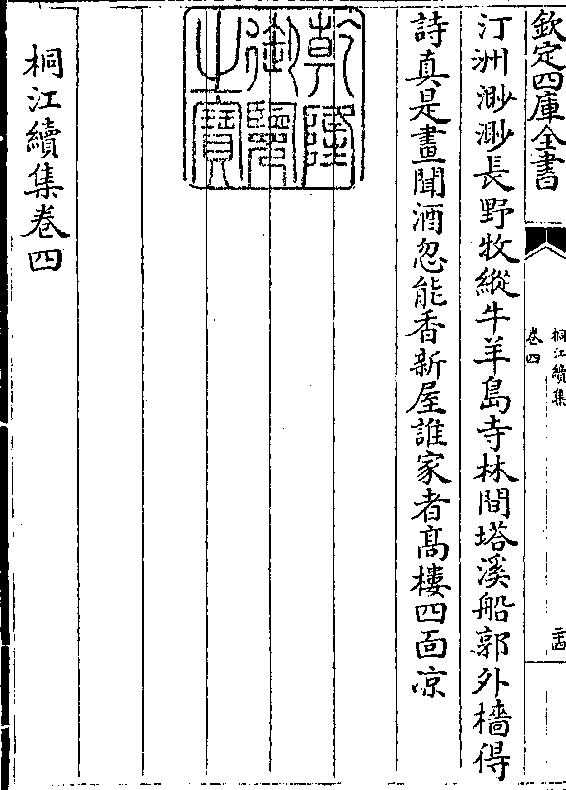 欽定四庫全書
桐江續集
卷四
二十四
汀洲渺渺長野牧縱牛羊島寺林間塔溪船郭外檣得
詩真是畫聞酒忽能香新屋誰家者髙樓四面凉
乾隆
御覽
之寶
桐江續集卷四